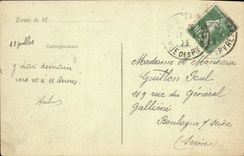 Envoi de M
Correspondance
12 juillet
J'irai demain
vers 10 h
Madame et Monsieur
Guitton Paul
219 rue du Général
Gallieni
Boulogne s/ Seine
(Seine)